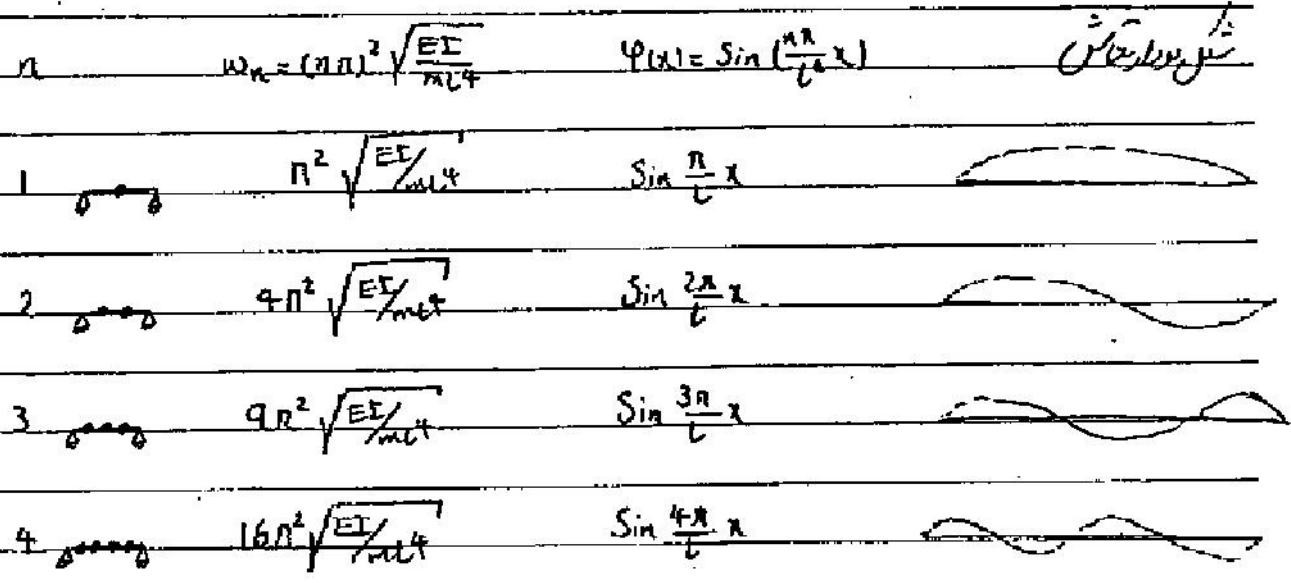 n ωn = (nπ)² √(EI/mL⁴) φ(x) = Sin (nπ/L x) شکل مود ارتعاش
1 π² √(EI/mL⁴) Sin π/L x
2 4π² √(EI/mL⁴) Sin 2π/L x
3 9π² √(EI/mL⁴) Sin 3π/L x
4 16π² √(EI/mL⁴) Sin 4π/L x